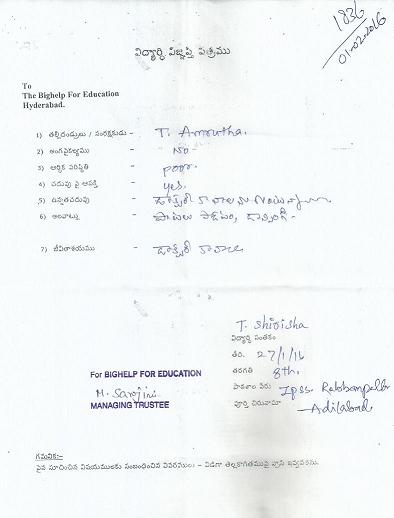 1836
01-02-2016
విద్యార్థి విజ్ఞప్తి పత్రము
To
The Bighelp For Education
Hyderabad.
1) తల్లిదండ్రులు / సంరక్షకుడు - T. Amrutha.
2) అంగవైకల్యము - No
3) ఆర్థిక పరిస్థితి - poor.
4) చదువు పై ఆసక్తి - yes.
5) ఉన్నతచదువు - డాక్టర్ కావాలను
6) అలవాట్లు - పాటలు పాడటం, డాన్సింగ్.
7) జీవితాశయము - డాక్టర్ కావాలి
T. Shirisha
విద్యార్థి సంతకం
తేది. 27/1/16
తరగతి 8th.
పాఠశాల పేరు Zpss.
పూర్తి చిరునామా Adilabad.
For BIGHELP FOR EDUCATION
M. Sarojini
MANAGING TRUSTEE
గమనిక:-
పైన సూచించిన విషయములకు సంబంధించిన వివరములు - విడిగా తెల్లకాగితముపై వ్రాసి ఇవ్వవలెను.